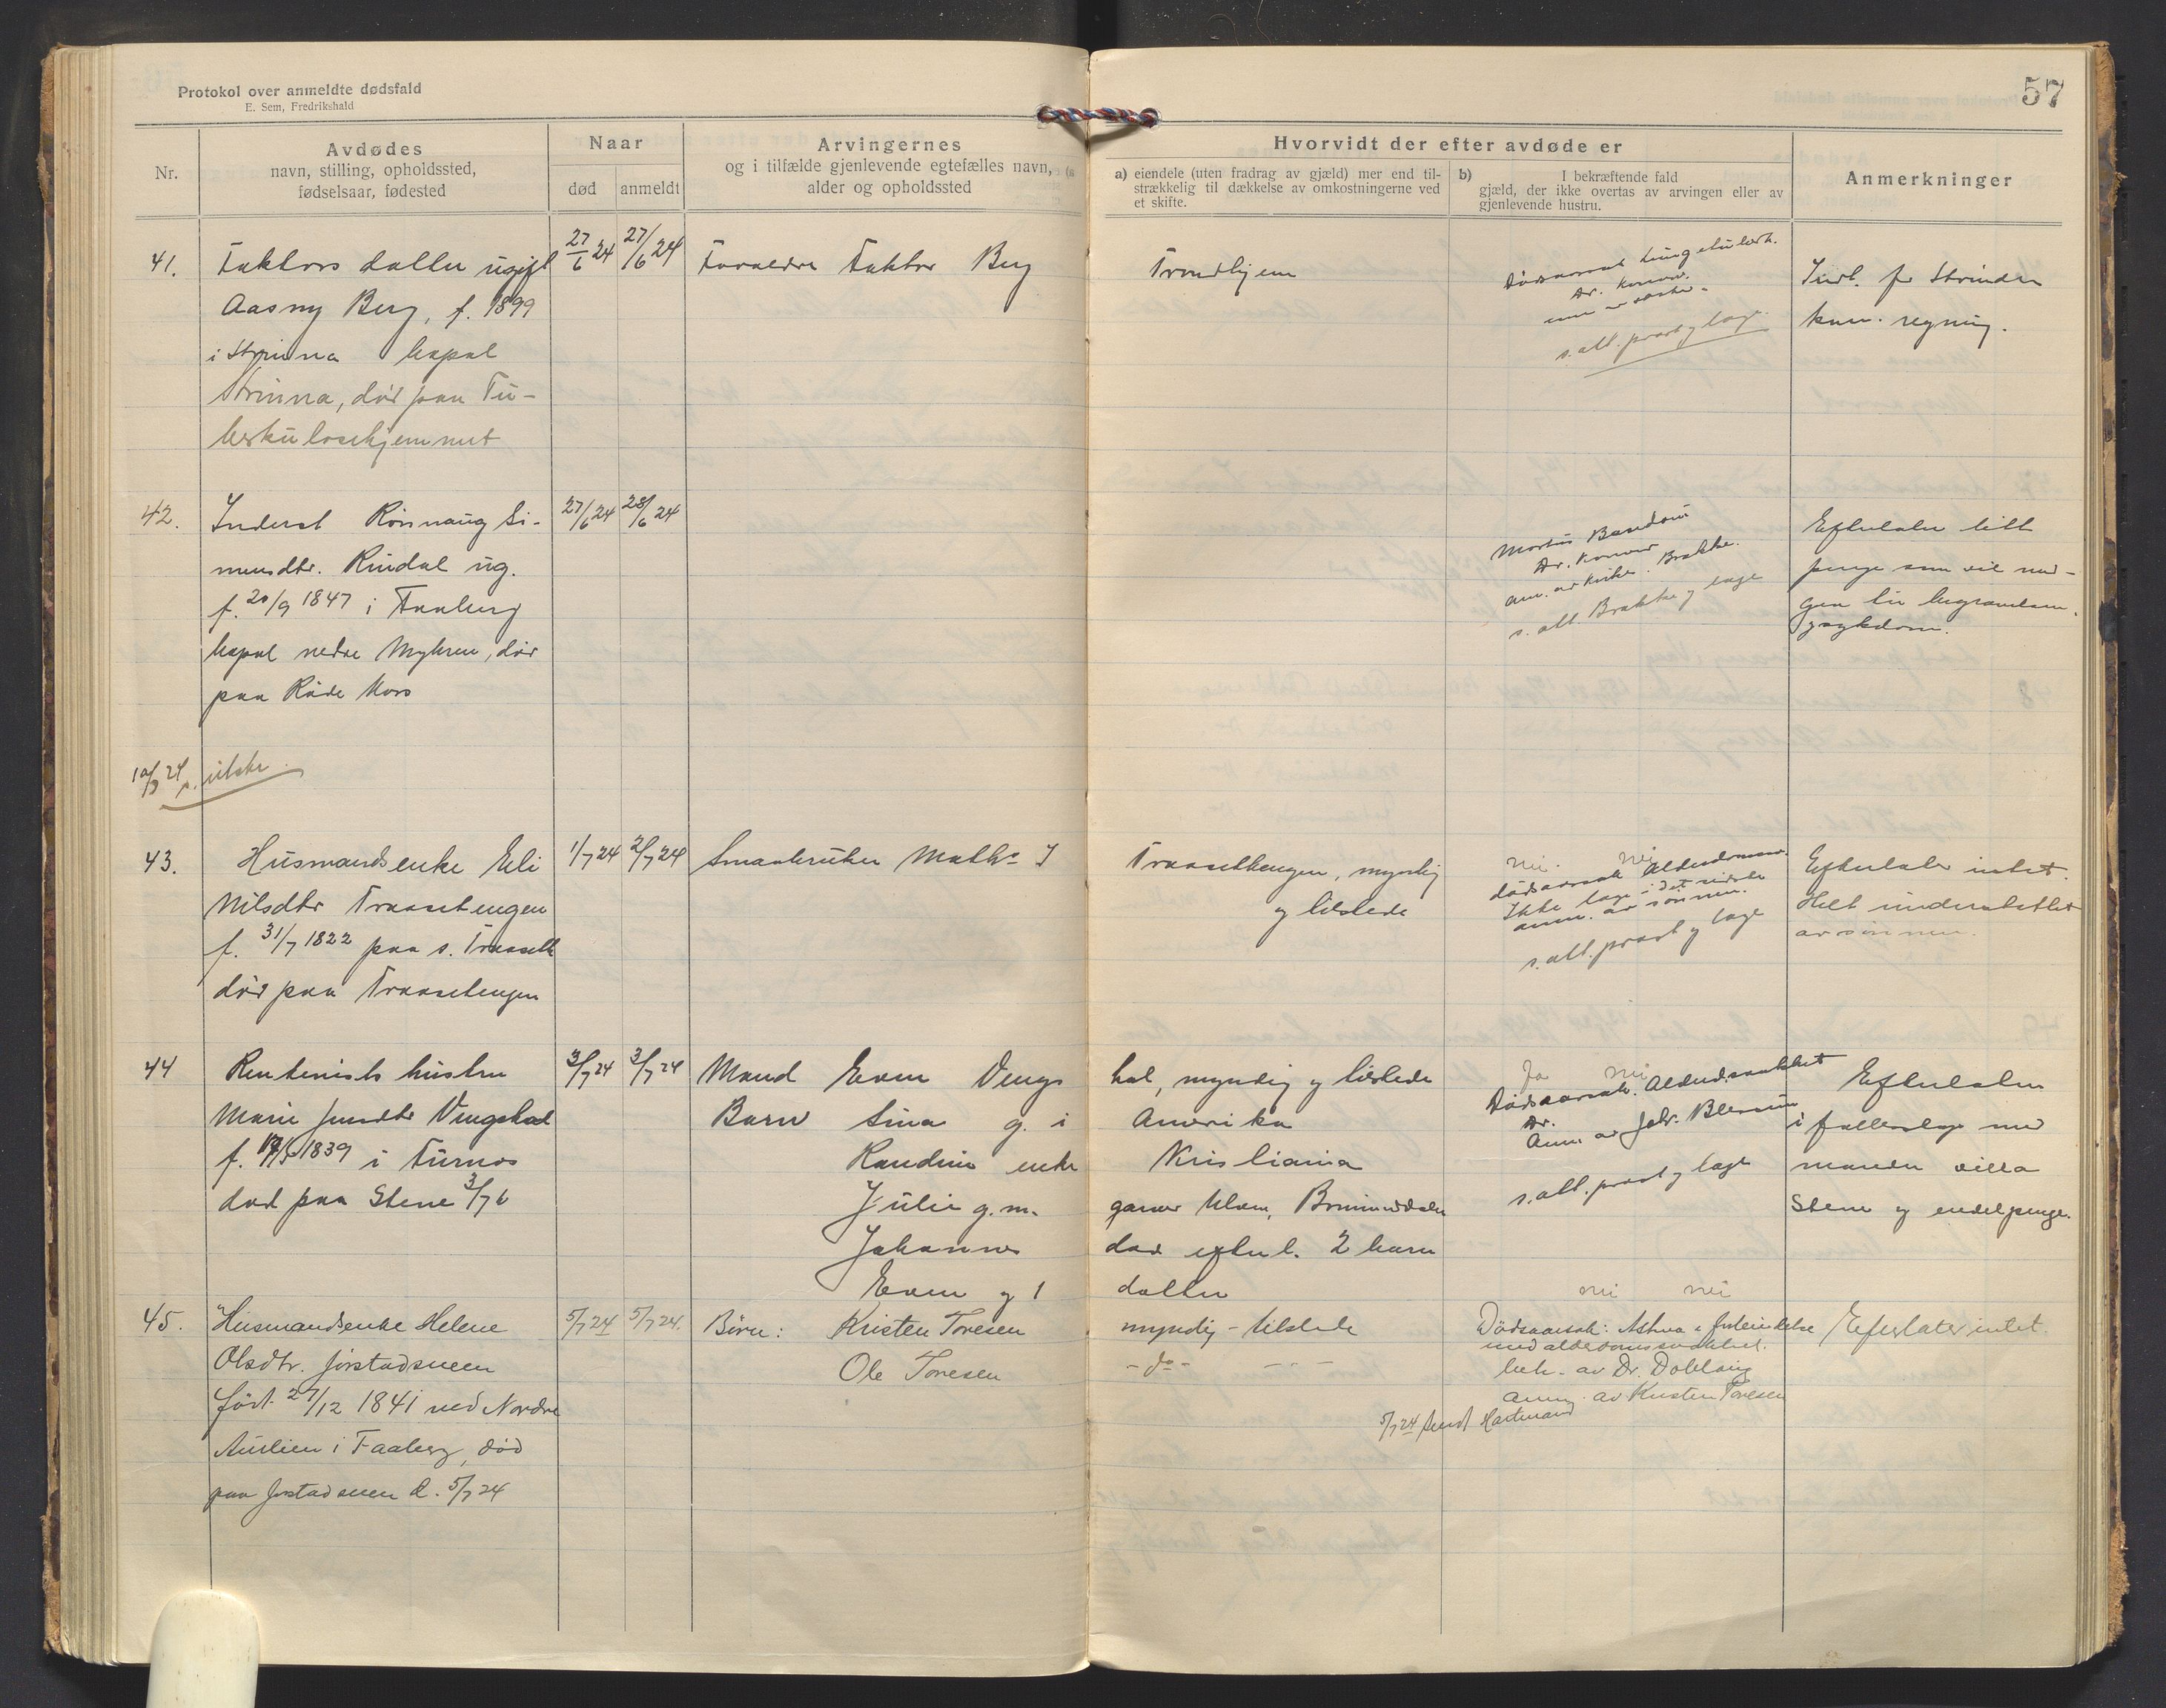 57
Protokol over anmeldte dødsfald
E. Sem, Fredrikshald
Nr.
Avdødes
navn, stilling, opholdssted,
fødselsaar, fødested
Naar
død
anmeldt
Arvingernes
og i tilfælde gjenlevende egtefælles navn,
alder og opholdssted
Hvorvidt der efter avdøde er
a) eiendele (uten fradrag av gjæld) mer end til-
strækkelig til dækkelse av omkostningerne ved
et skifte.
b) I bekræftende fald
gjæld, der ikke overtas av arvingen eller av
gjenlevende hustru.
Anmerkninger
41.
Faktors datter ugift
Aasny Berg, f. 1899
i Strinna bopæl
Strinna, død paa Tu-
berkulosehjemmet
27/6 24
27/6 24
Forældre Faktor Berg
Trondhjem
Dødsaarsak Lungetuberk.
Dr.
s. att. prost og læge
Indl. for Strinden
kom. regning.
42.
Inderst Rönnaug Si-
mensdtr. Rindal ug.
f. 20/9 1847 i Faaberg
bopæl nedre Myhren, død
paa Røde Kors
27/6 24
28/6 24
Dr.
anm. av Brække.
s. att. Brække og læge
Efterlater litt
penge som vil med-
gaa til begravelsen
og sykdom.
10/9 24 p.
43.
Husmandsenke Eli
Nilsdtr Traasetengen
f. 31/7 1822 paa s. Traaset
död paa Traasetengen
1/7 24
2/7 24
Smaabruker Maths J
Traasetengen, myndig
og tilstede
nei. nei
dødsaarsak Alderdomssv.
Ikke læge i det sidste
anm. av sönnen.
s. att. prost og læge
Efterlater intet.
Helt understøttet
av sönnen.
44
Rentenists hustru
Marie Jensdtr Vingshal
f. 1839 i Furnes
død paa Stene 3/7
3/7 24
3/7 24
Mand Even Vengs
hal, myndig og tilstede
Barn Sina g. i
Amerika
Randine enke
Kristiania
Julie g.m.
garver Brumunddalen
Johannes
død efterl. 2 barn
Even og 1
datter
Ja nei
Dødsaarsak. Alderd.svakhet
Dr.
Anm. av
s. att. prost og læge
Efterlater
i fællesbo med
manden villa
Stene og endel penge.
45.
Husmandsenke Helene
Olsdtr. Jørstadsveen
født 27/12 1841 ved Nordre
Aulien i Faaberg, død
paa Jørstadsveen d. 5/7 24
5/7 24
5/7 24.
Börn: Kristen Toresen
myndig - tilstede
Ole Toresen
- do - - " -
nei nei
Dødsaarsak: Astma i forbindelse
med alderdomssvakhet.
beh. av Dr. Dobloug
anm. av Kristen Toresen
5/7 24 sendt
Efterlater intet.